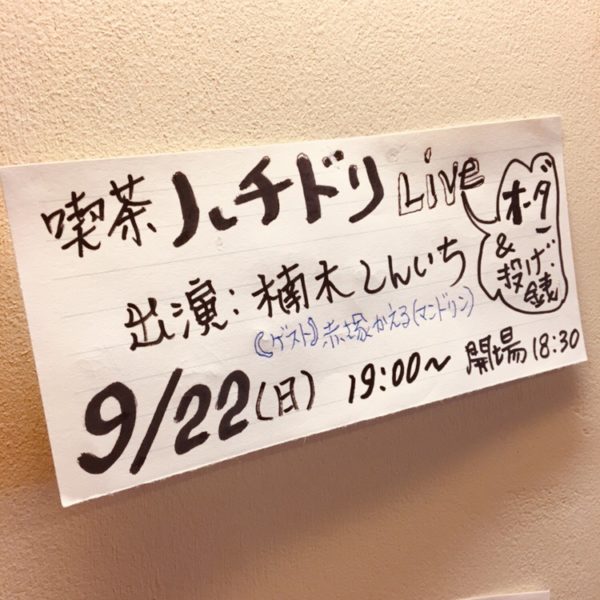 喫茶 ハチドリ Live
オーダー
&
投げ銭
出演：楠木しんいち
《ゲスト》赤塚かえる(マンドリン)
9/22(日) 19:00〜 開場18:30